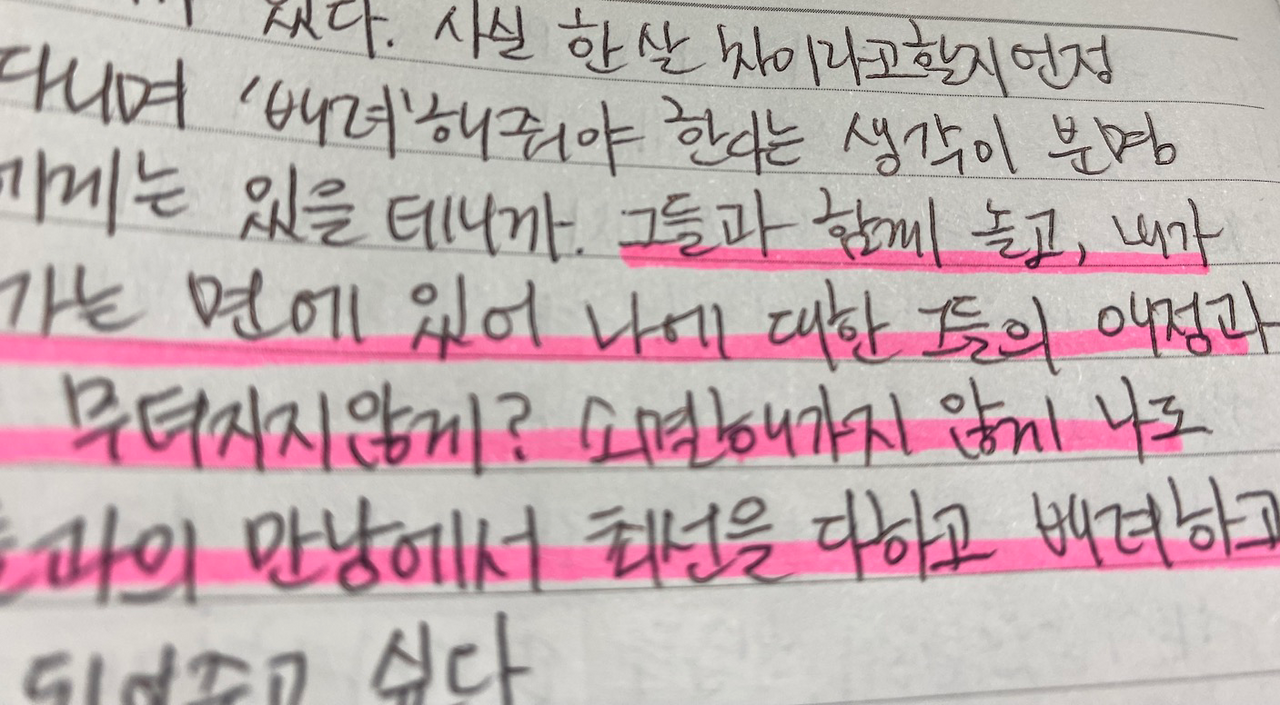 있다. 사실 한 살 차이라고할지언정
다니며 '배려'해줘야 한다는 생각이 분명
에게는 있을 테니까. 그들과 함께 놀고, 내가
가는 면에 있어 나에 대한 그들의 애정과
무뎌지지않게? 소멸해가지 않게 나도
과의 만남에서 최선을 다하고 배려하고
되어주고 싶다